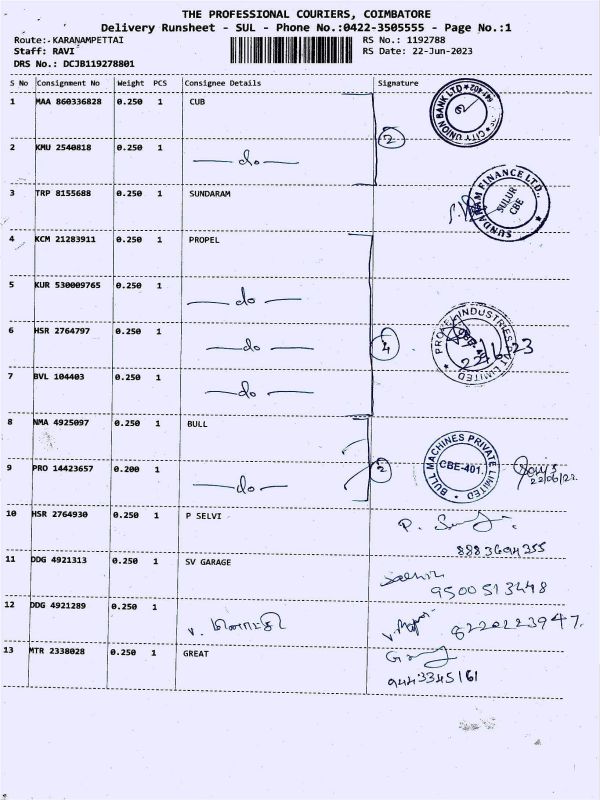 THE PROFESSIONAL COURIERS, COIMBATORE
Delivery Runsheet - SUL - Phone No.:0422-3505555 - Page No.:1
Route:-KARANAMPETTAI RS No.: 1192788
Staff: RAVI RS Date: 22-Jun-2023
DRS No.: DCJB119278801
S No Consignment No Weight PCS Consignee Details Signature
1 MAA 860336828 0.250 1 CUB
CITY UNION BANK LTD
2 KMU 2540818 0.250 1 do
2
3 TRP 8155688 0.250 1 SUNDARAM
SUNDARAM FINANCE LTD.,
SULUR
CBE
4 KCM 21283911 0.250 1 PROPEL
5 KUR 530009765 0.250 1 do
6 HSR 2764797 0.250 1 do
4
PROPEL INDUSTRIES PRIVATE LIMITED
22/6/23
7 BVL 104403 0.250 1 do
8 NMA 4925097 0.250 1 BULL
BULL MACHINES PRIVATE LIMITED
CBE-401.
9 PRO 14423657 0.200 1 do
2
22/06/23
10 HSR 2764930 0.250 1 P SELVI
8883694355
11 DDG 4921313 0.250 1 SV GARAGE
9500513448
12 DDG 4921289 0.250 1
8220223947.
13 MTR 2338028 0.250 1 GREAT
9443345161